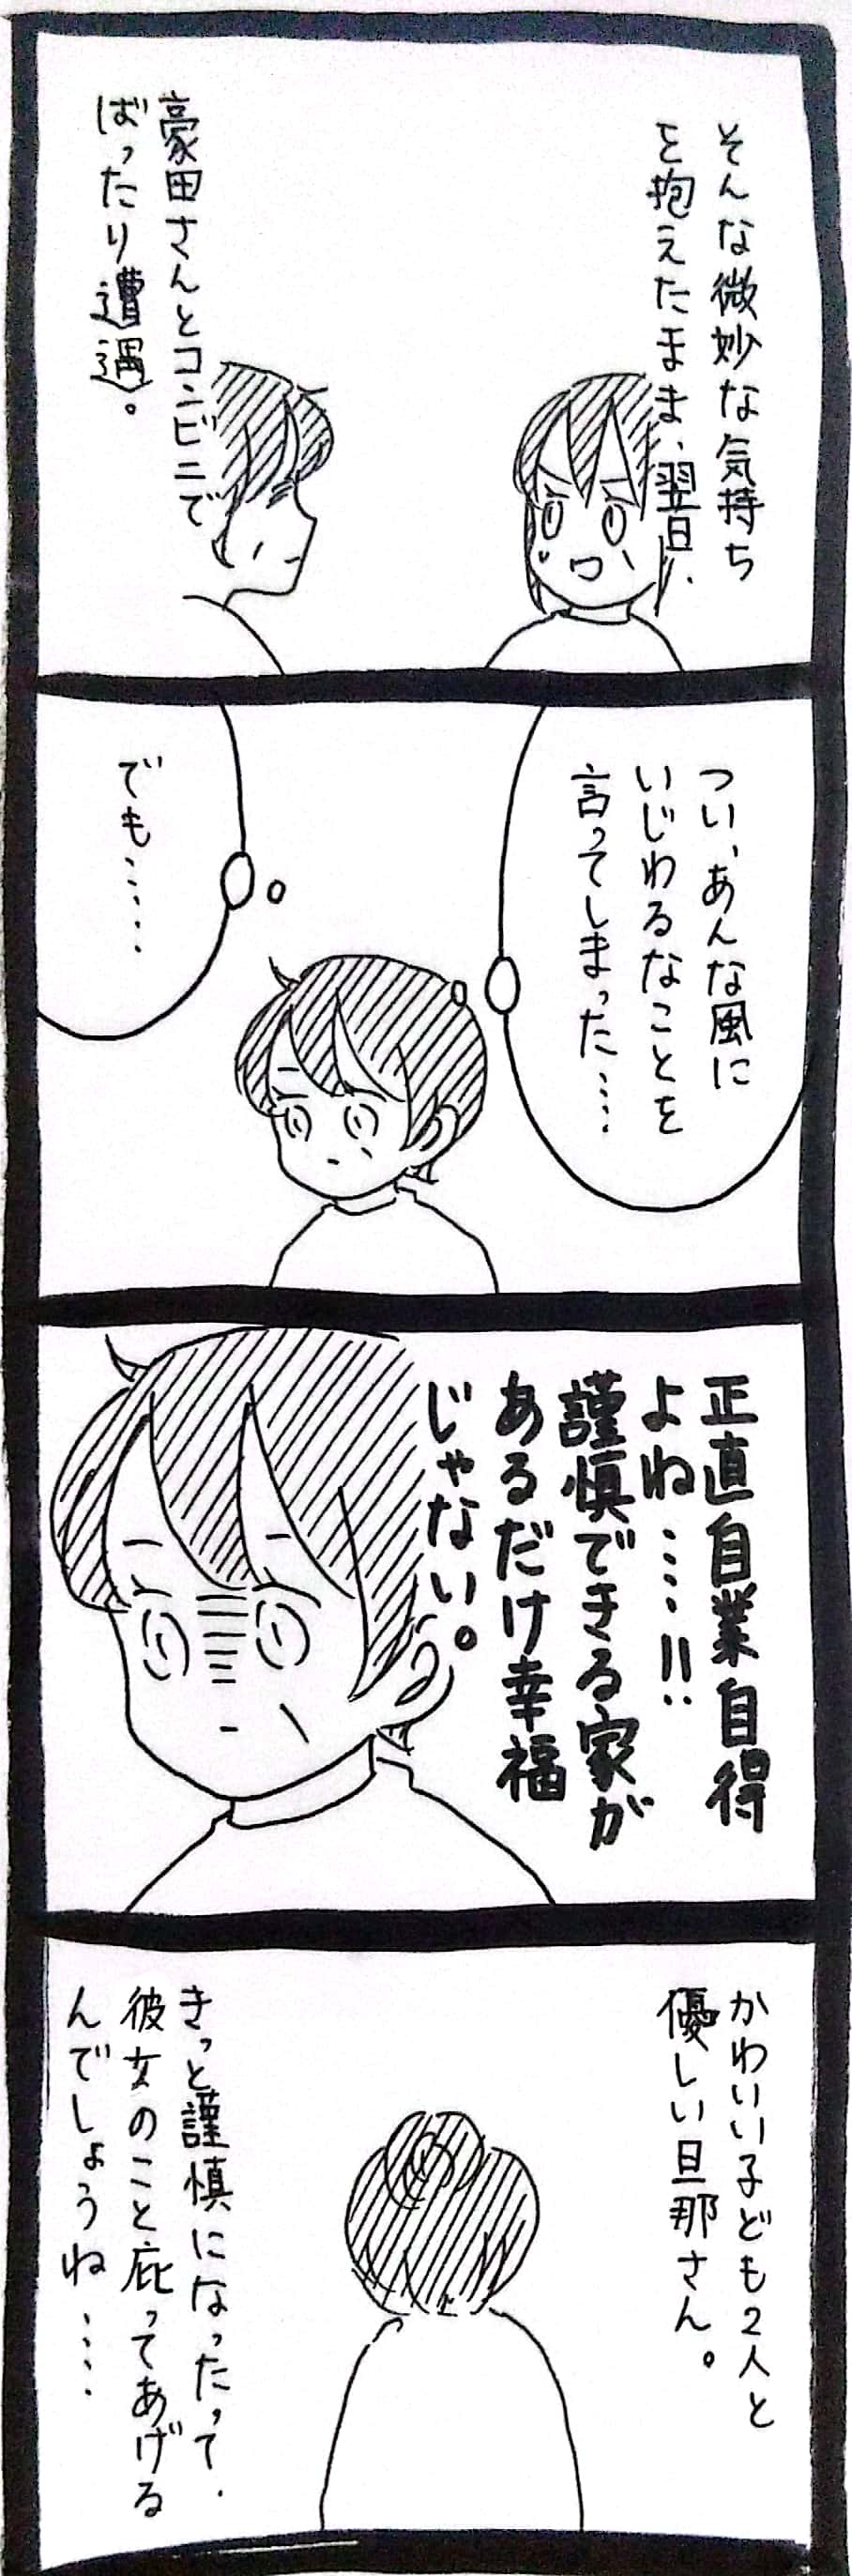 そんな微妙な気持ち
を抱えたまま、翌日、
豪田さんとコンビニで
ばったり遭遇。
つい、あんな風に
いじわるなことを
言ってしまった……
でも……
正直自業自得
よね……!!
謹慎できる家が
あるだけ幸福
じゃない。
かわいい子ども2人と
優しい旦那さん。
きっと謹慎になったって、
彼女のこと庇ってあげる
んでしょうね……